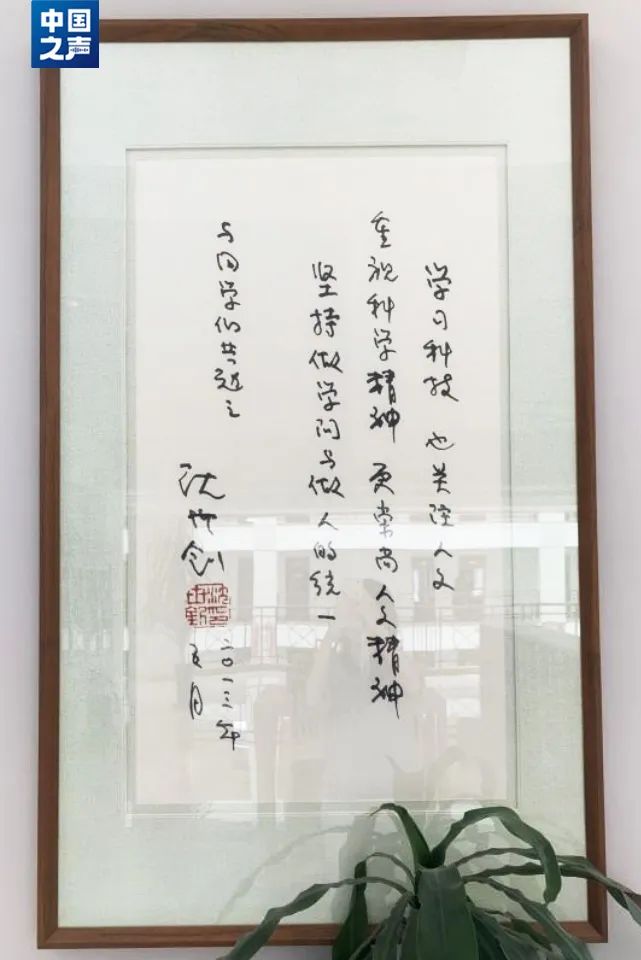 中国之声
学习科技 也关注人文
重视科学精神 更崇尚人文精神
坚持做学问与做人的统一
与同学们共勉之
沈
二〇一三年
五月